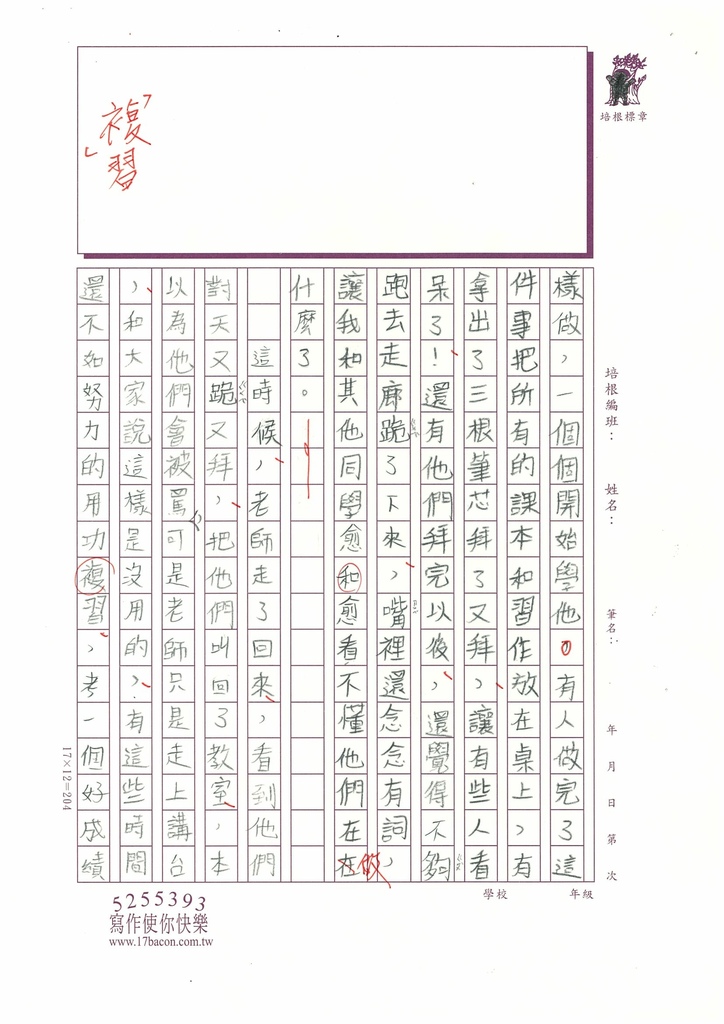 「複習」
培根標章
樣做，一個個開始學他。有人做完了這
件事把所有的課本和習作放在桌上，有
拿出了三根筆芯拜了又拜，讓有些人看
呆了！還有他們拜完以後，還覺得不夠
跑去走廊跪了下來，嘴裡還念念有詞，
讓我和其他同學愈和愈看不懂他們在做
什麼了。
這時候，老師走了回來，看到他們
對天又跪又拜，把他們叫回了教室，本
以為他們會被罵可是老師只是走上講台
，和大家說這樣是沒用的，有這些時間
還不如努力的用功複習，考一個好成績
培根編班： 姓名： 筆名： 年 月 日 第 次
17×12=204
學校 年級
5255393
寫作使你快樂
www.17bacon.com.tw